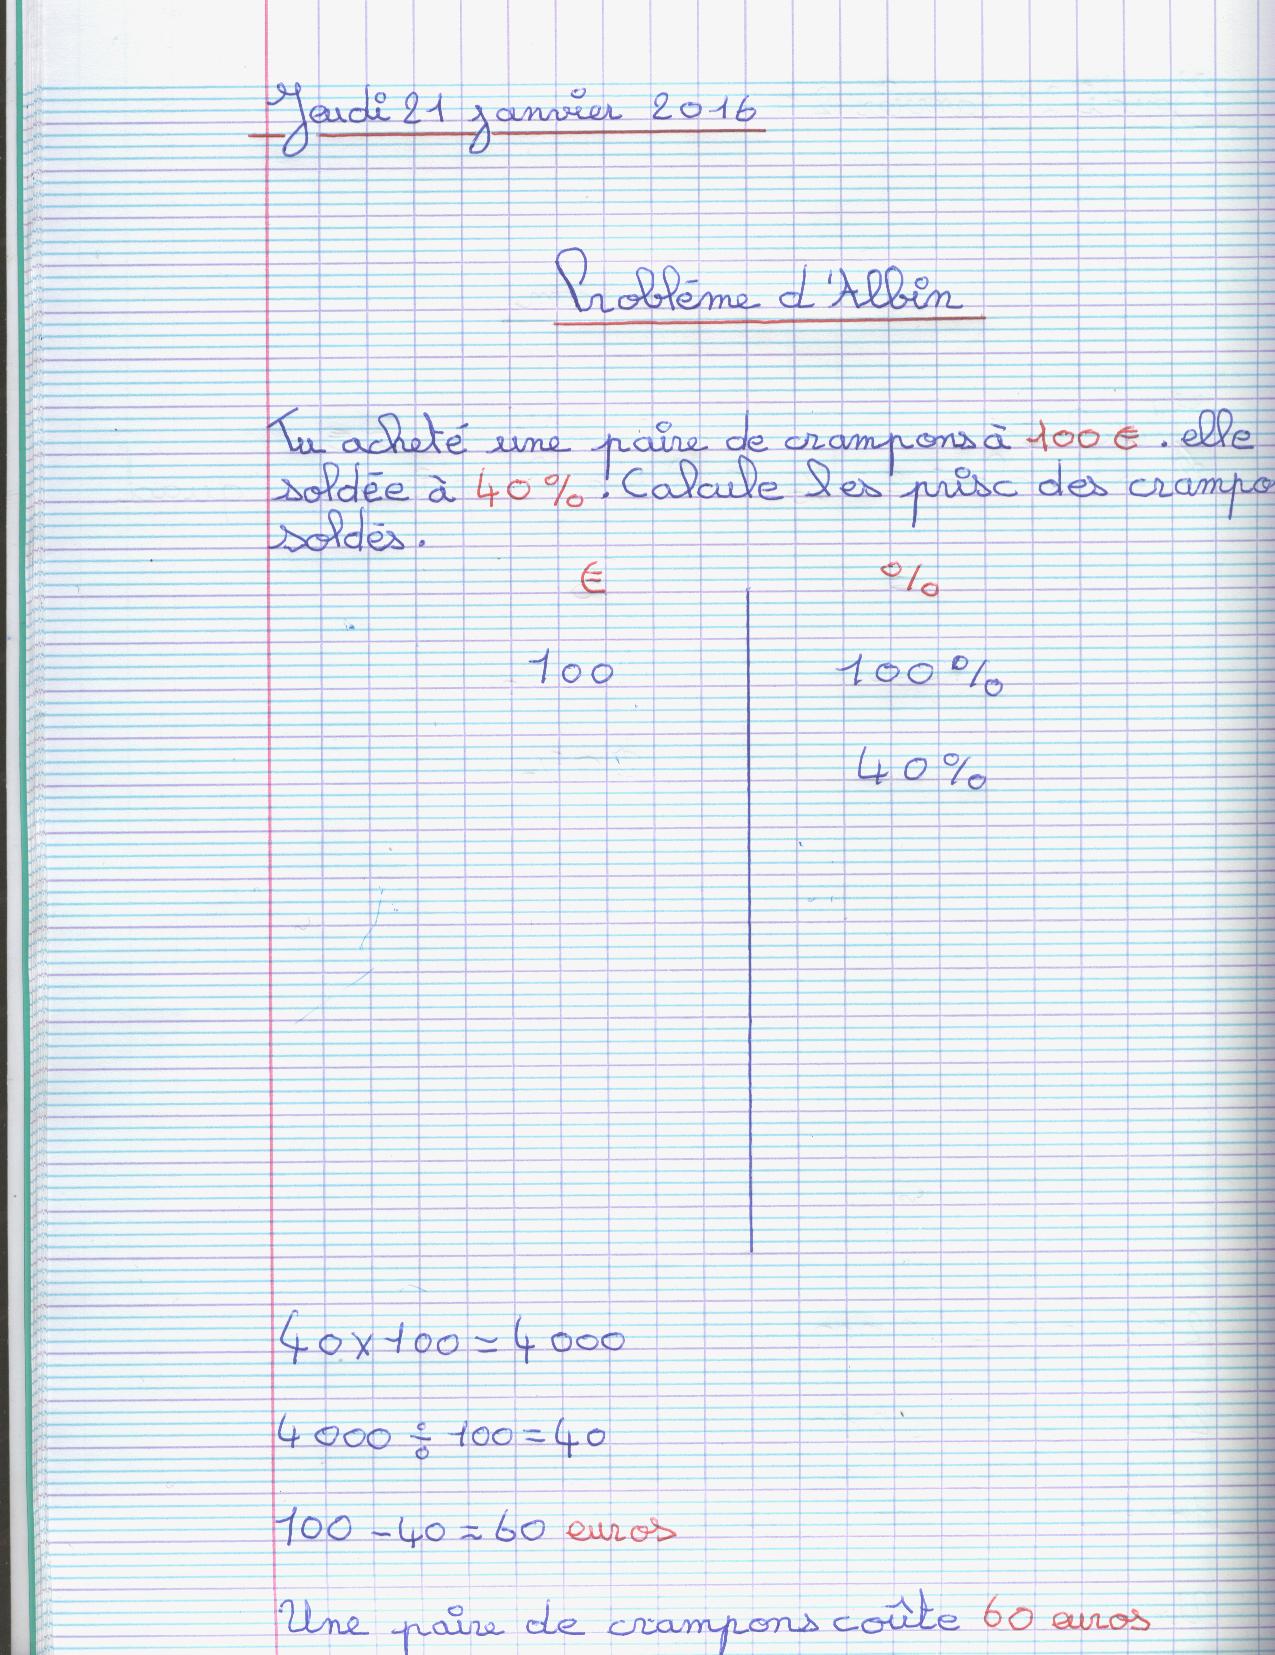 Jeudi 21 janvier 2016
Problème d'Albin
Tu acheté une paire de crampons à 100 €. elle
soldée à 40 %. Calcule les prix des crampo
soldés.
€ %
100 100 %
40 %
40 x 100 = 4 000
4 000 ÷ 100 = 40
100 - 40 = 60 euros
Une paire de crampons coûte 60 euros